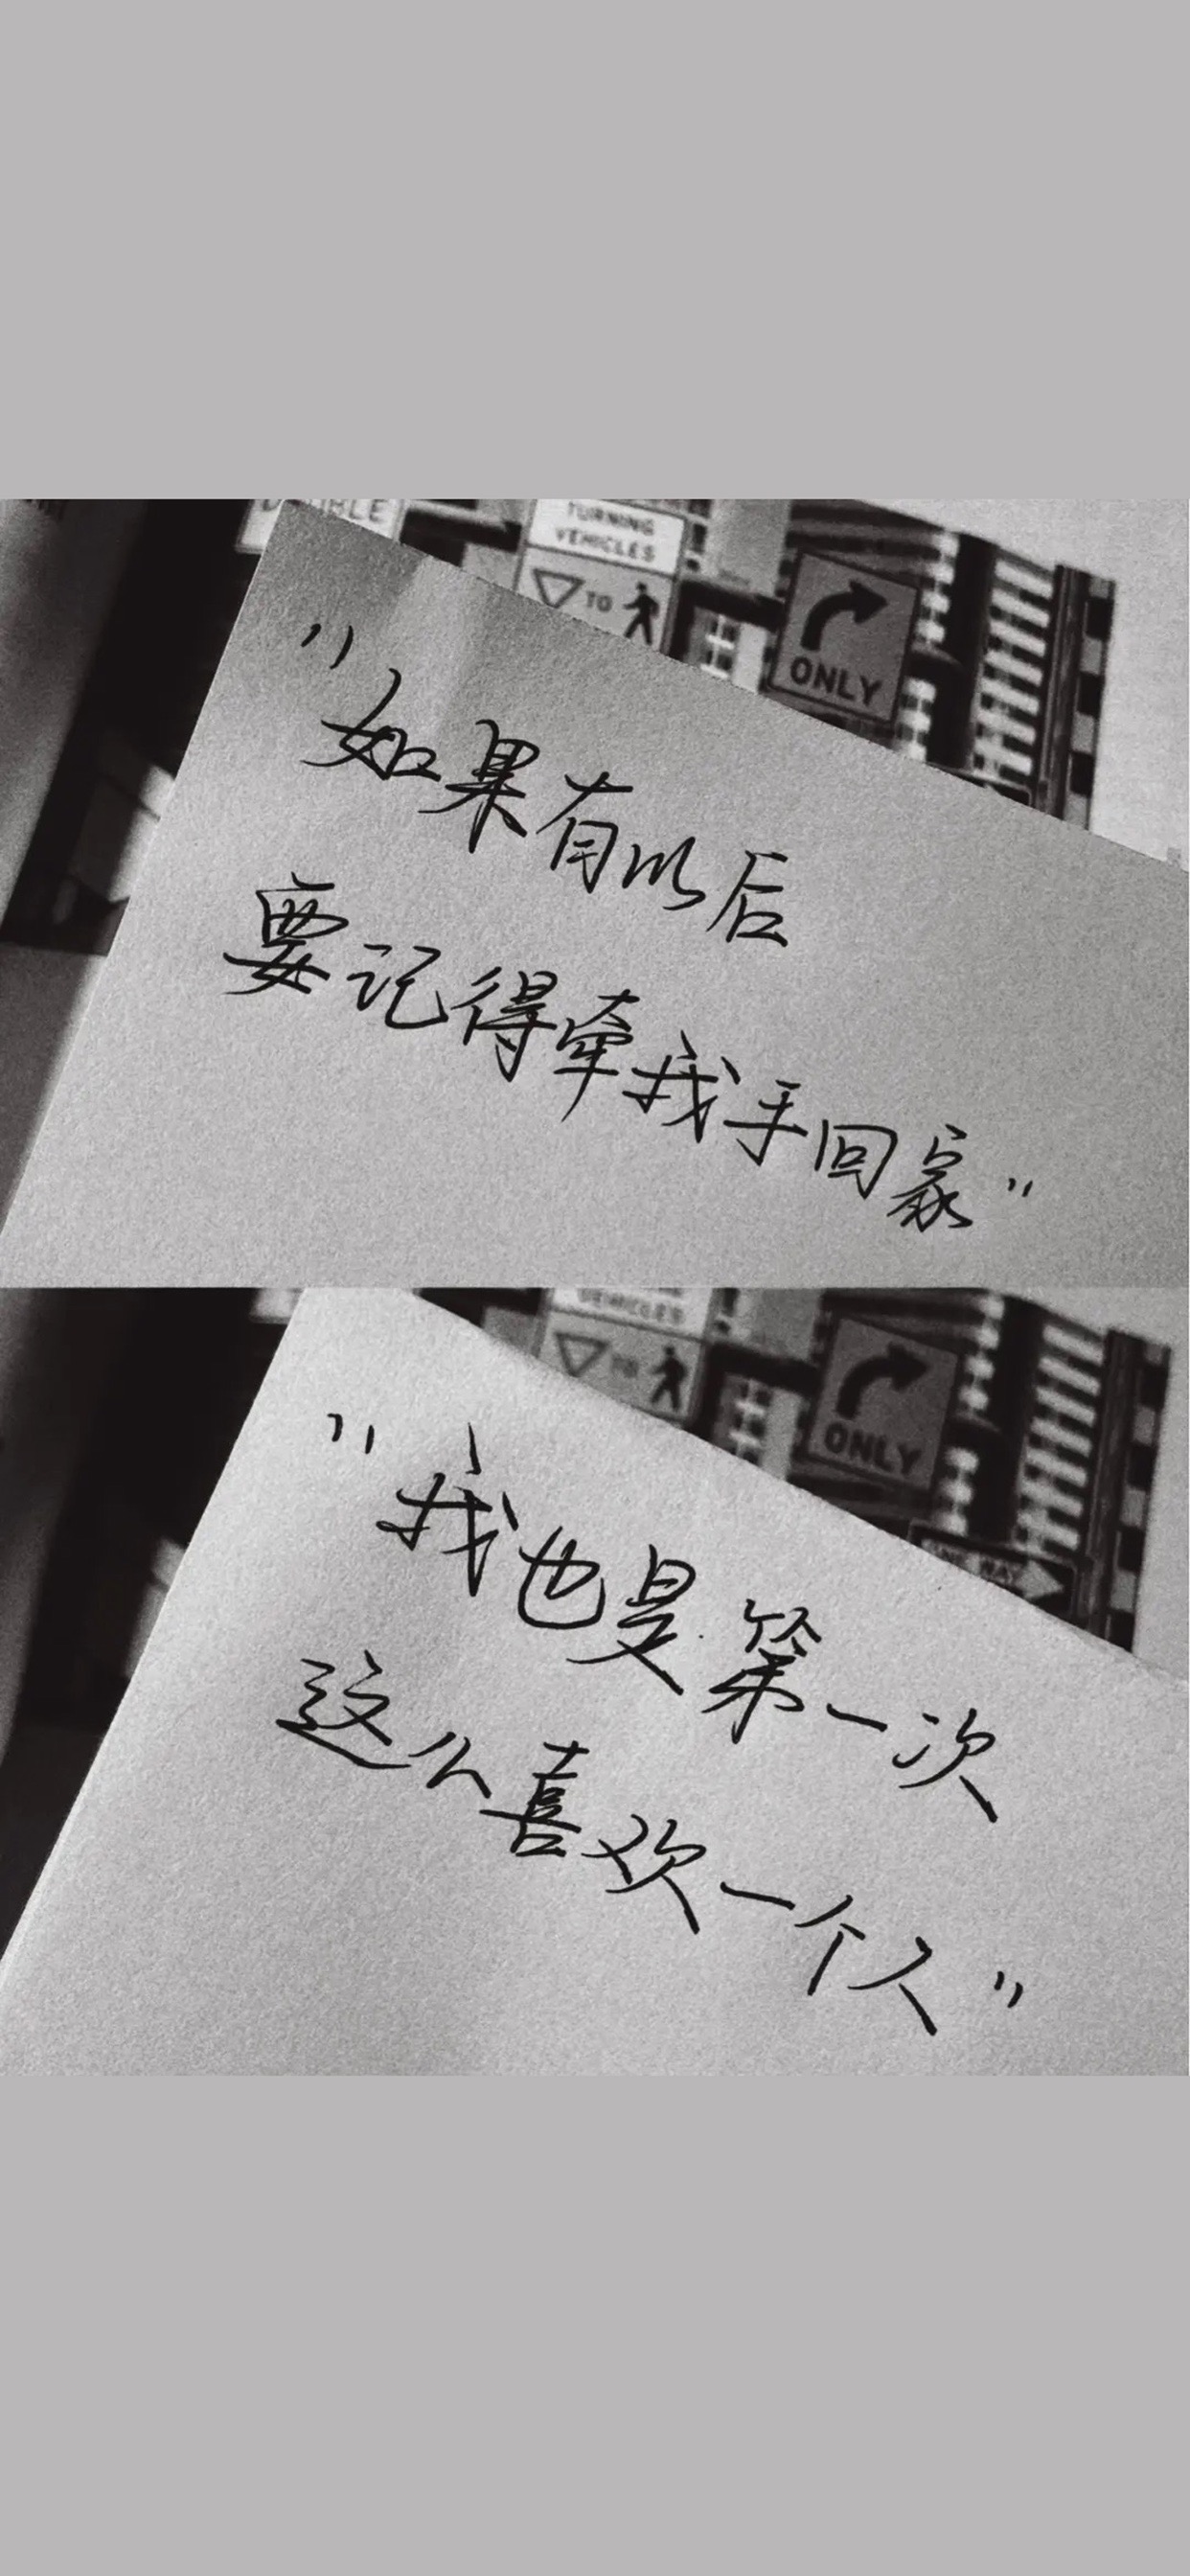 TURNING
VEHICLES
TO
ONLY
"如果有以后
要记得牵我手回家"
VEHICLES
TO
ONLY
"我也是第一次
这么喜欢一个人"